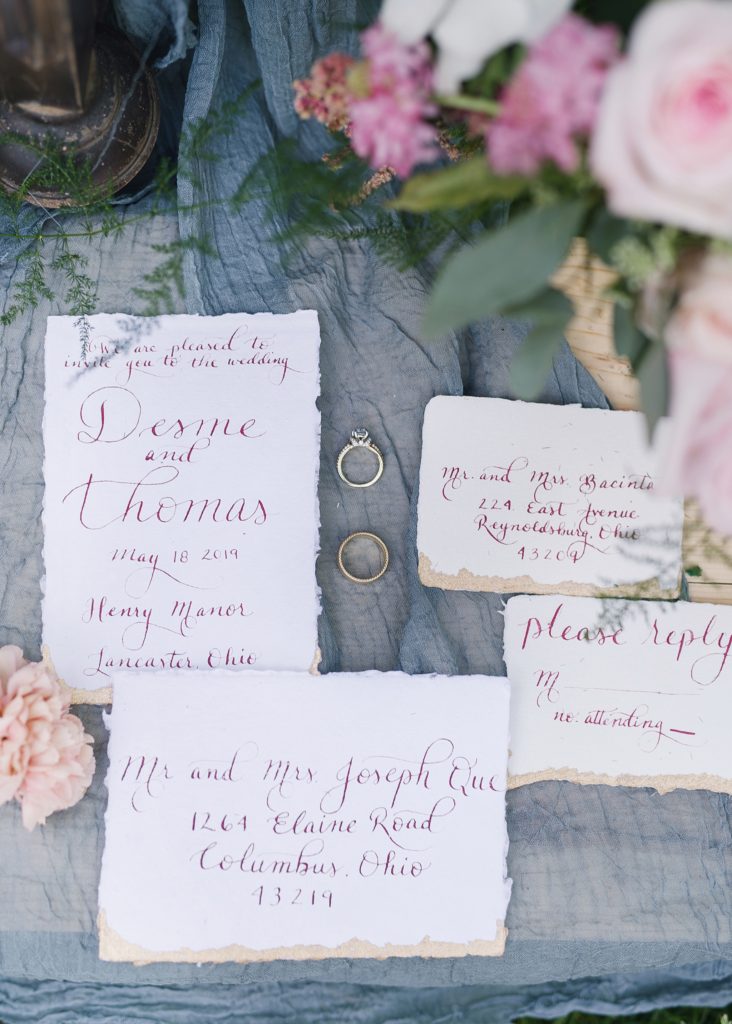 We are pleased to
invite you to the wedding
Desme
and
Thomas
May 18 2019
Henry Manor
Lancaster, Ohio
Mr. and Mrs. Bacinta
224 East Avenue
Reynoldsburg, Ohio
43209
please reply
M
no. attending
Mr and Mrs. Joseph Que
1264 Elaine Road
Columbus, Ohio
43219